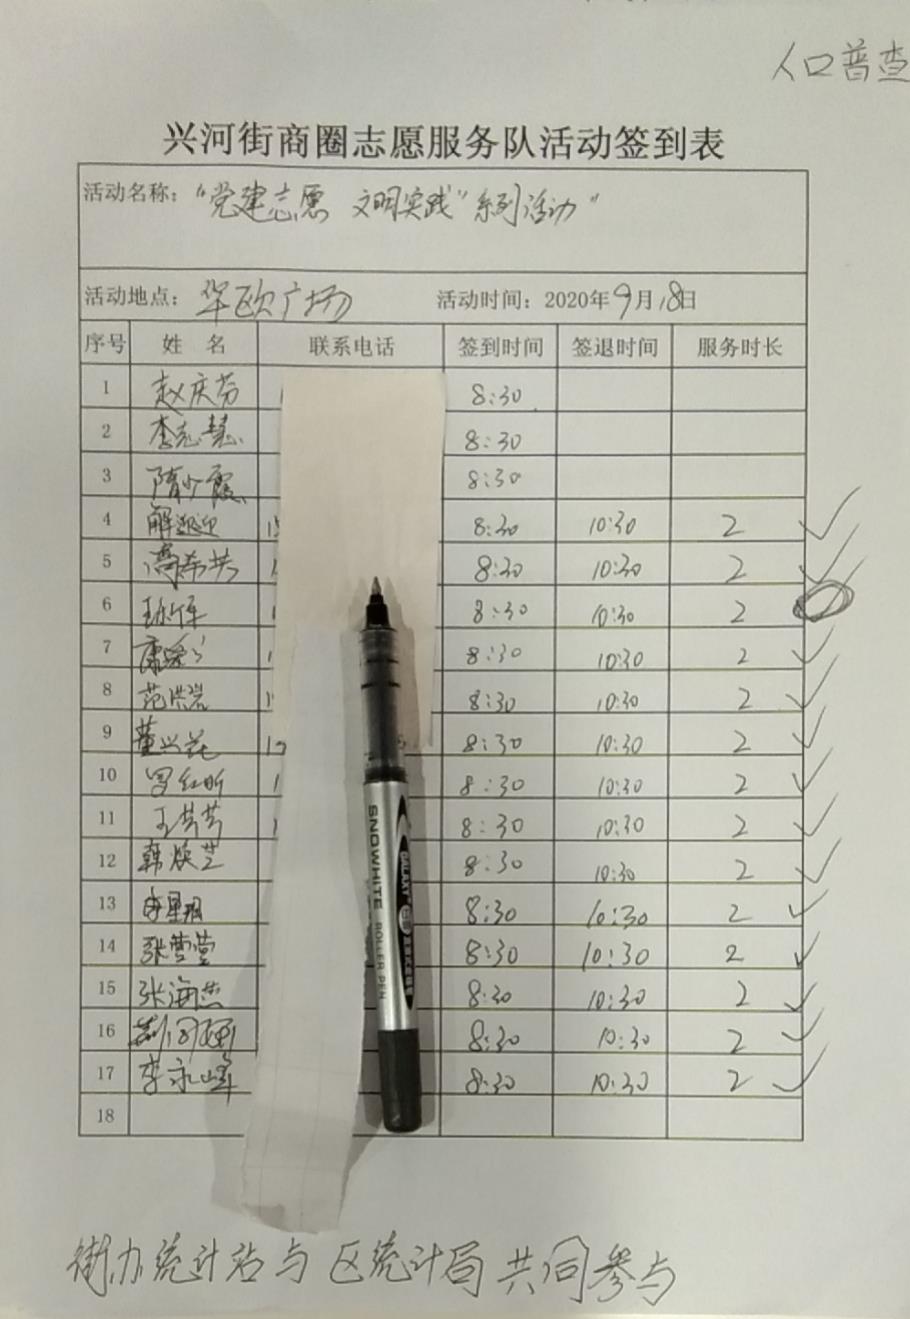 人口普查
兴河街商圈志愿服务队活动签到表
活动名称：“党建志愿 文明实践”系列活动”
活动地点：华欧广场 活动时间：2020年9月18日
序号 姓 名 联系电话 签到时间 签退时间 服务时长
1 赵庆芬 1 8:30
2 李志慧 8:30
3 隋少霞 8:30
4 解迎迎 15 8:30 10:30 2
5 高希共 1 8:30 10:30 2
6 1 8:30 10:30 2
7 康 1 8:30 10:30 2
8 范洪岩 1 8:30 10:30 2
9 董兴花 1 8:30 10:30 2
10 罗红昕 1 8:30 10:30 2
11 王芳芳 1 8:30 10:30 2
12 韩焕芝 8:30 10:30 2
13 李 8:30 10:30 2
14 张营营 8:30 10:30 2
15 张海燕 8:30 10:30 2
16 8:30 10:30 2
17 李永峰 8:30 10:30 2
18
SNOWHITE ROLLER PEN
GALAXY
街办统计站与区统计局共同参与